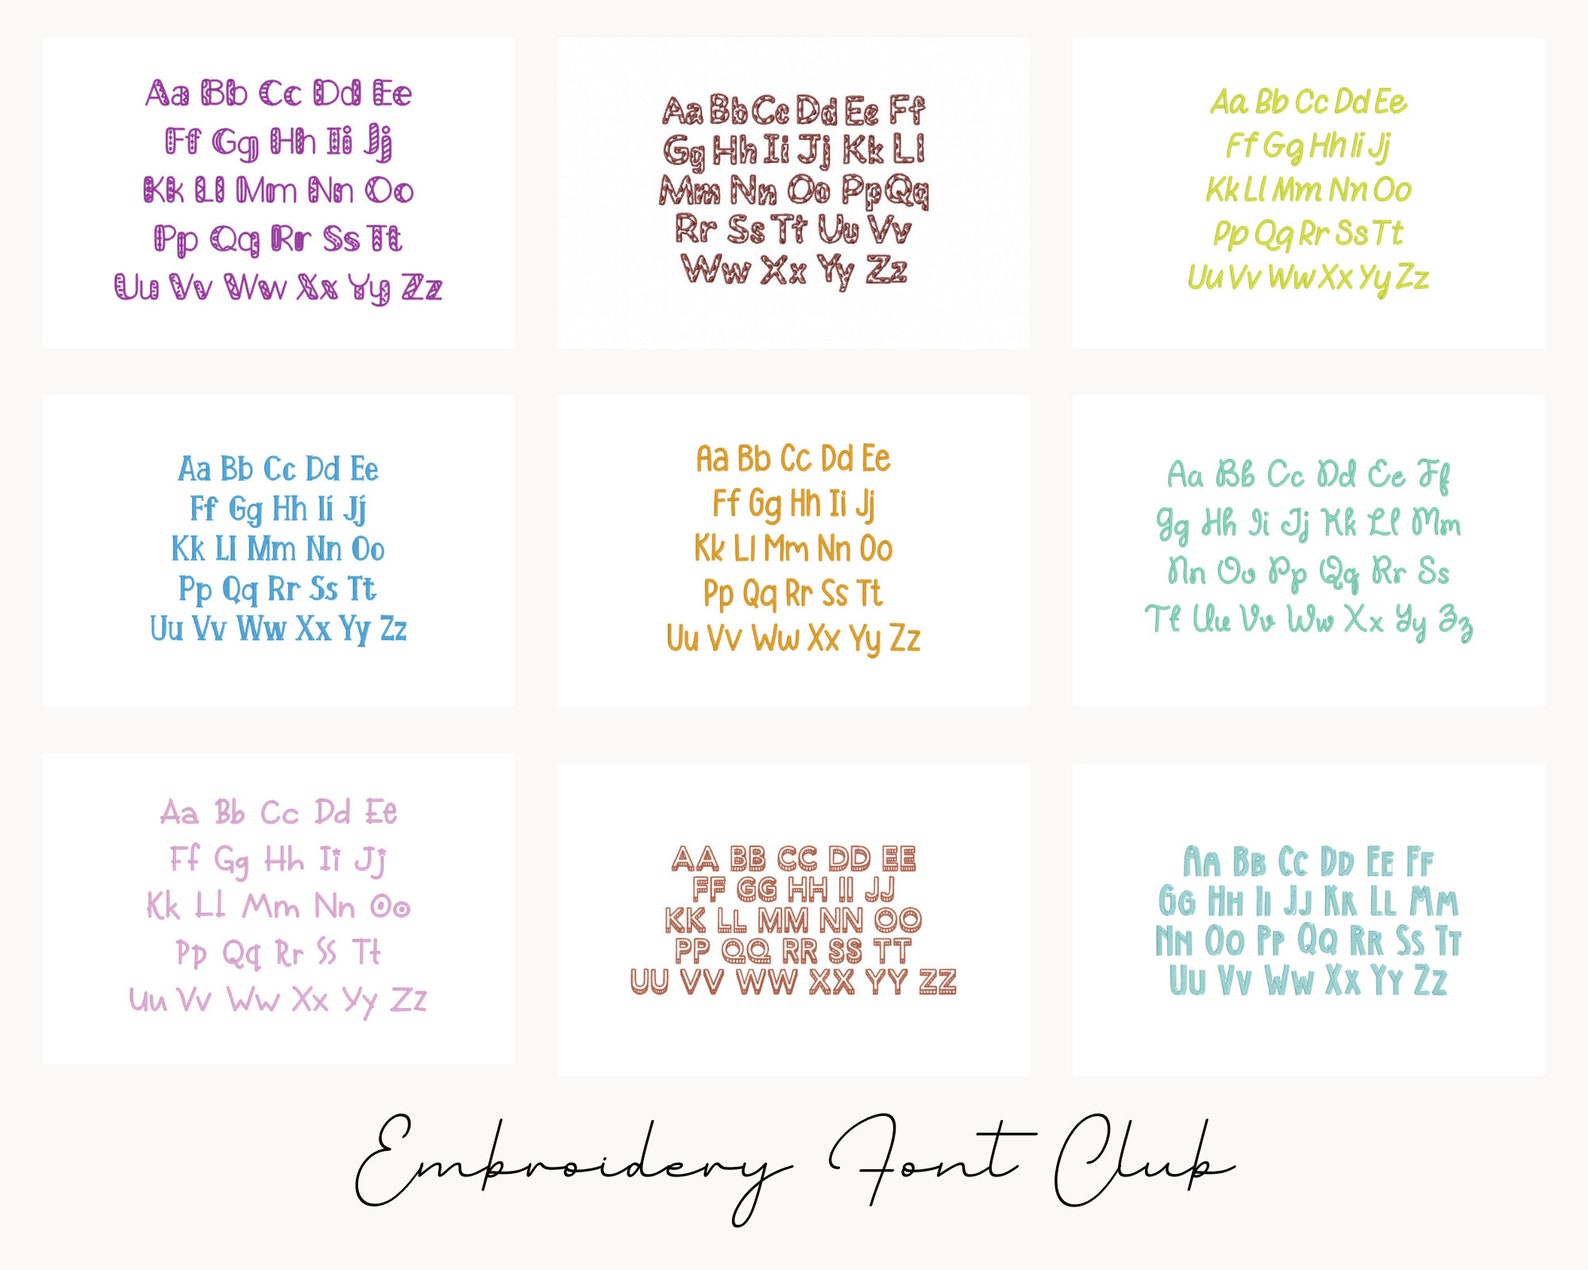 Aa Bb Cc Dd Ee
Ff Gg Hh Ii Jj
Kk Ll Mm Nn Oo
Pp Qq Rr Ss Tt
Uu Vv Ww Xx Yy Zz
Aa Bb Cc Dd Ee Ff
Gg Hh Ii Jj Kk Ll
Mm Nn Oo Pp Qq
Rr Ss Tt Uu Vv
Ww Xx Yy Zz
Aa Bb Cc Dd Ee
Ff Gg Hh Ii Jj
Kk Ll Mm Nn Oo
Pp Qq Rr Ss Tt
Uu Vv Ww Xx Yy Zz
Aa Bb Cc Dd Ee
Ff Gg Hh Ii Jj
Kk Ll Mm Nn Oo
Pp Qq Rr Ss Tt
Uu Vv Ww Xx Yy Zz
Aa Bb Cc Dd Ee
Ff Gg Hh Ii Jj
Kk Ll Mm Nn Oo
Pp Qq Rr Ss Tt
Uu Vv Ww Xx Yy Zz
Aa Bb Cc Dd Ee Ff
Gg Hh Ii Jj Kk Ll Mm
Nn Oo Pp Qq Rr Ss
Tt Uu Vv Ww Xx Yy Zz
Aa Bb Cc Dd Ee
Ff Gg Hh Ii Jj
Kk Ll Mm Nn Oo
Pp Qq Rr Ss Tt
Uu Vv Ww Xx Yy Zz
AA BB CC DD EE
FF GG HH II JJ
KK LL MM NN OO
PP QQ RR SS TT
UU VV WW XX YY ZZ
AA BB CC DD EE FF
GG HH II JJ KK LL MM
NN OO PP QQ RR SS TT
UU VV WW XX YY ZZ
Embroidery Font Club